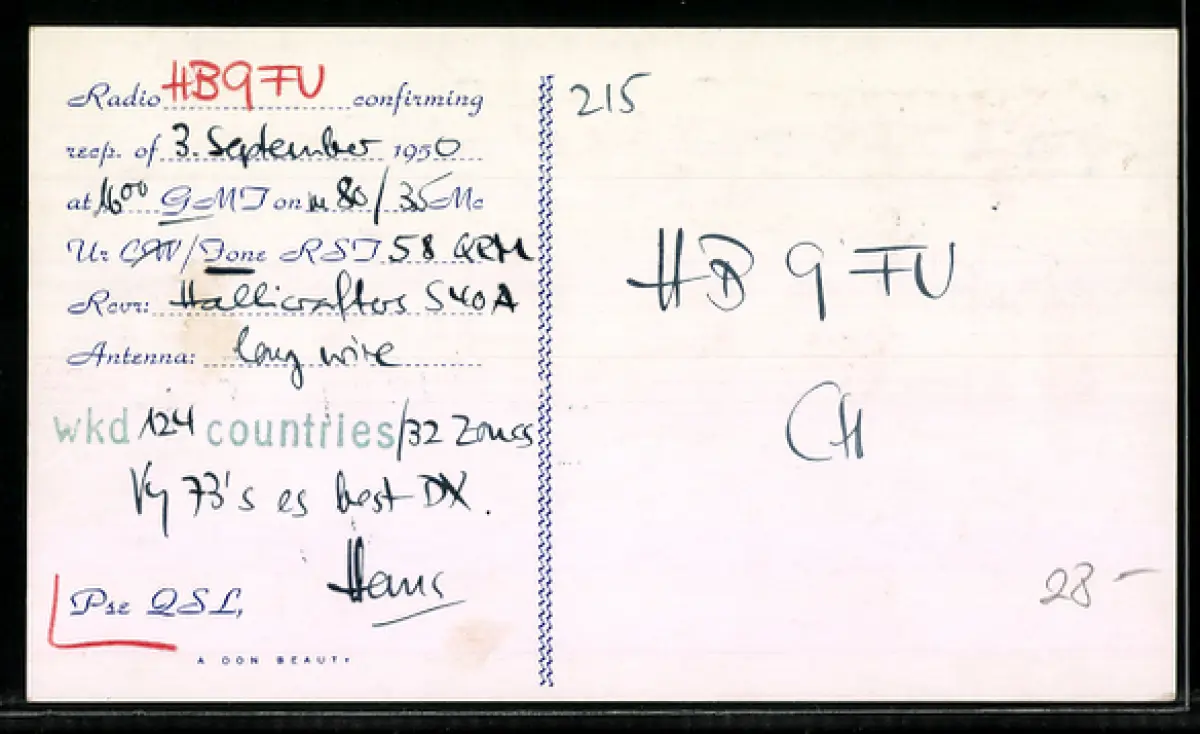 Radio HB9FU confirming
recp. of 3. September 1950
at 1600 GMT on m 80/35 Mc
Ur CW/Fone RST 58 QRM
Rcvr: Hallicrafters S40A
Antenna: long wire
wkd 124 countries/32 Zones
Vy 73's es best DX.
Hans
Pse QSL,
A DON BEAUTY
215
HB9FU
CH
28-